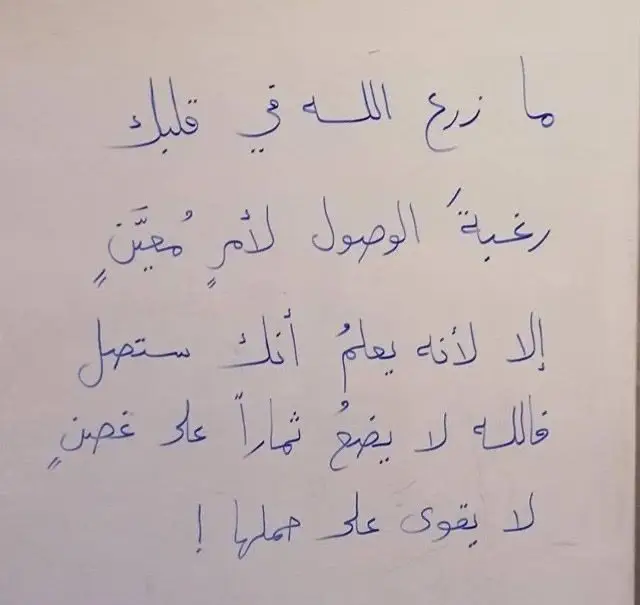 ما زرع الله في قلبك
رغبةَ الوصول لأمرٍ مُعيَّنٍ
إلا لأنه يعلمُ أنك ستصل
فالله لا يضعُ ثماراً على غصنٍ
لا يقوى على حملها !